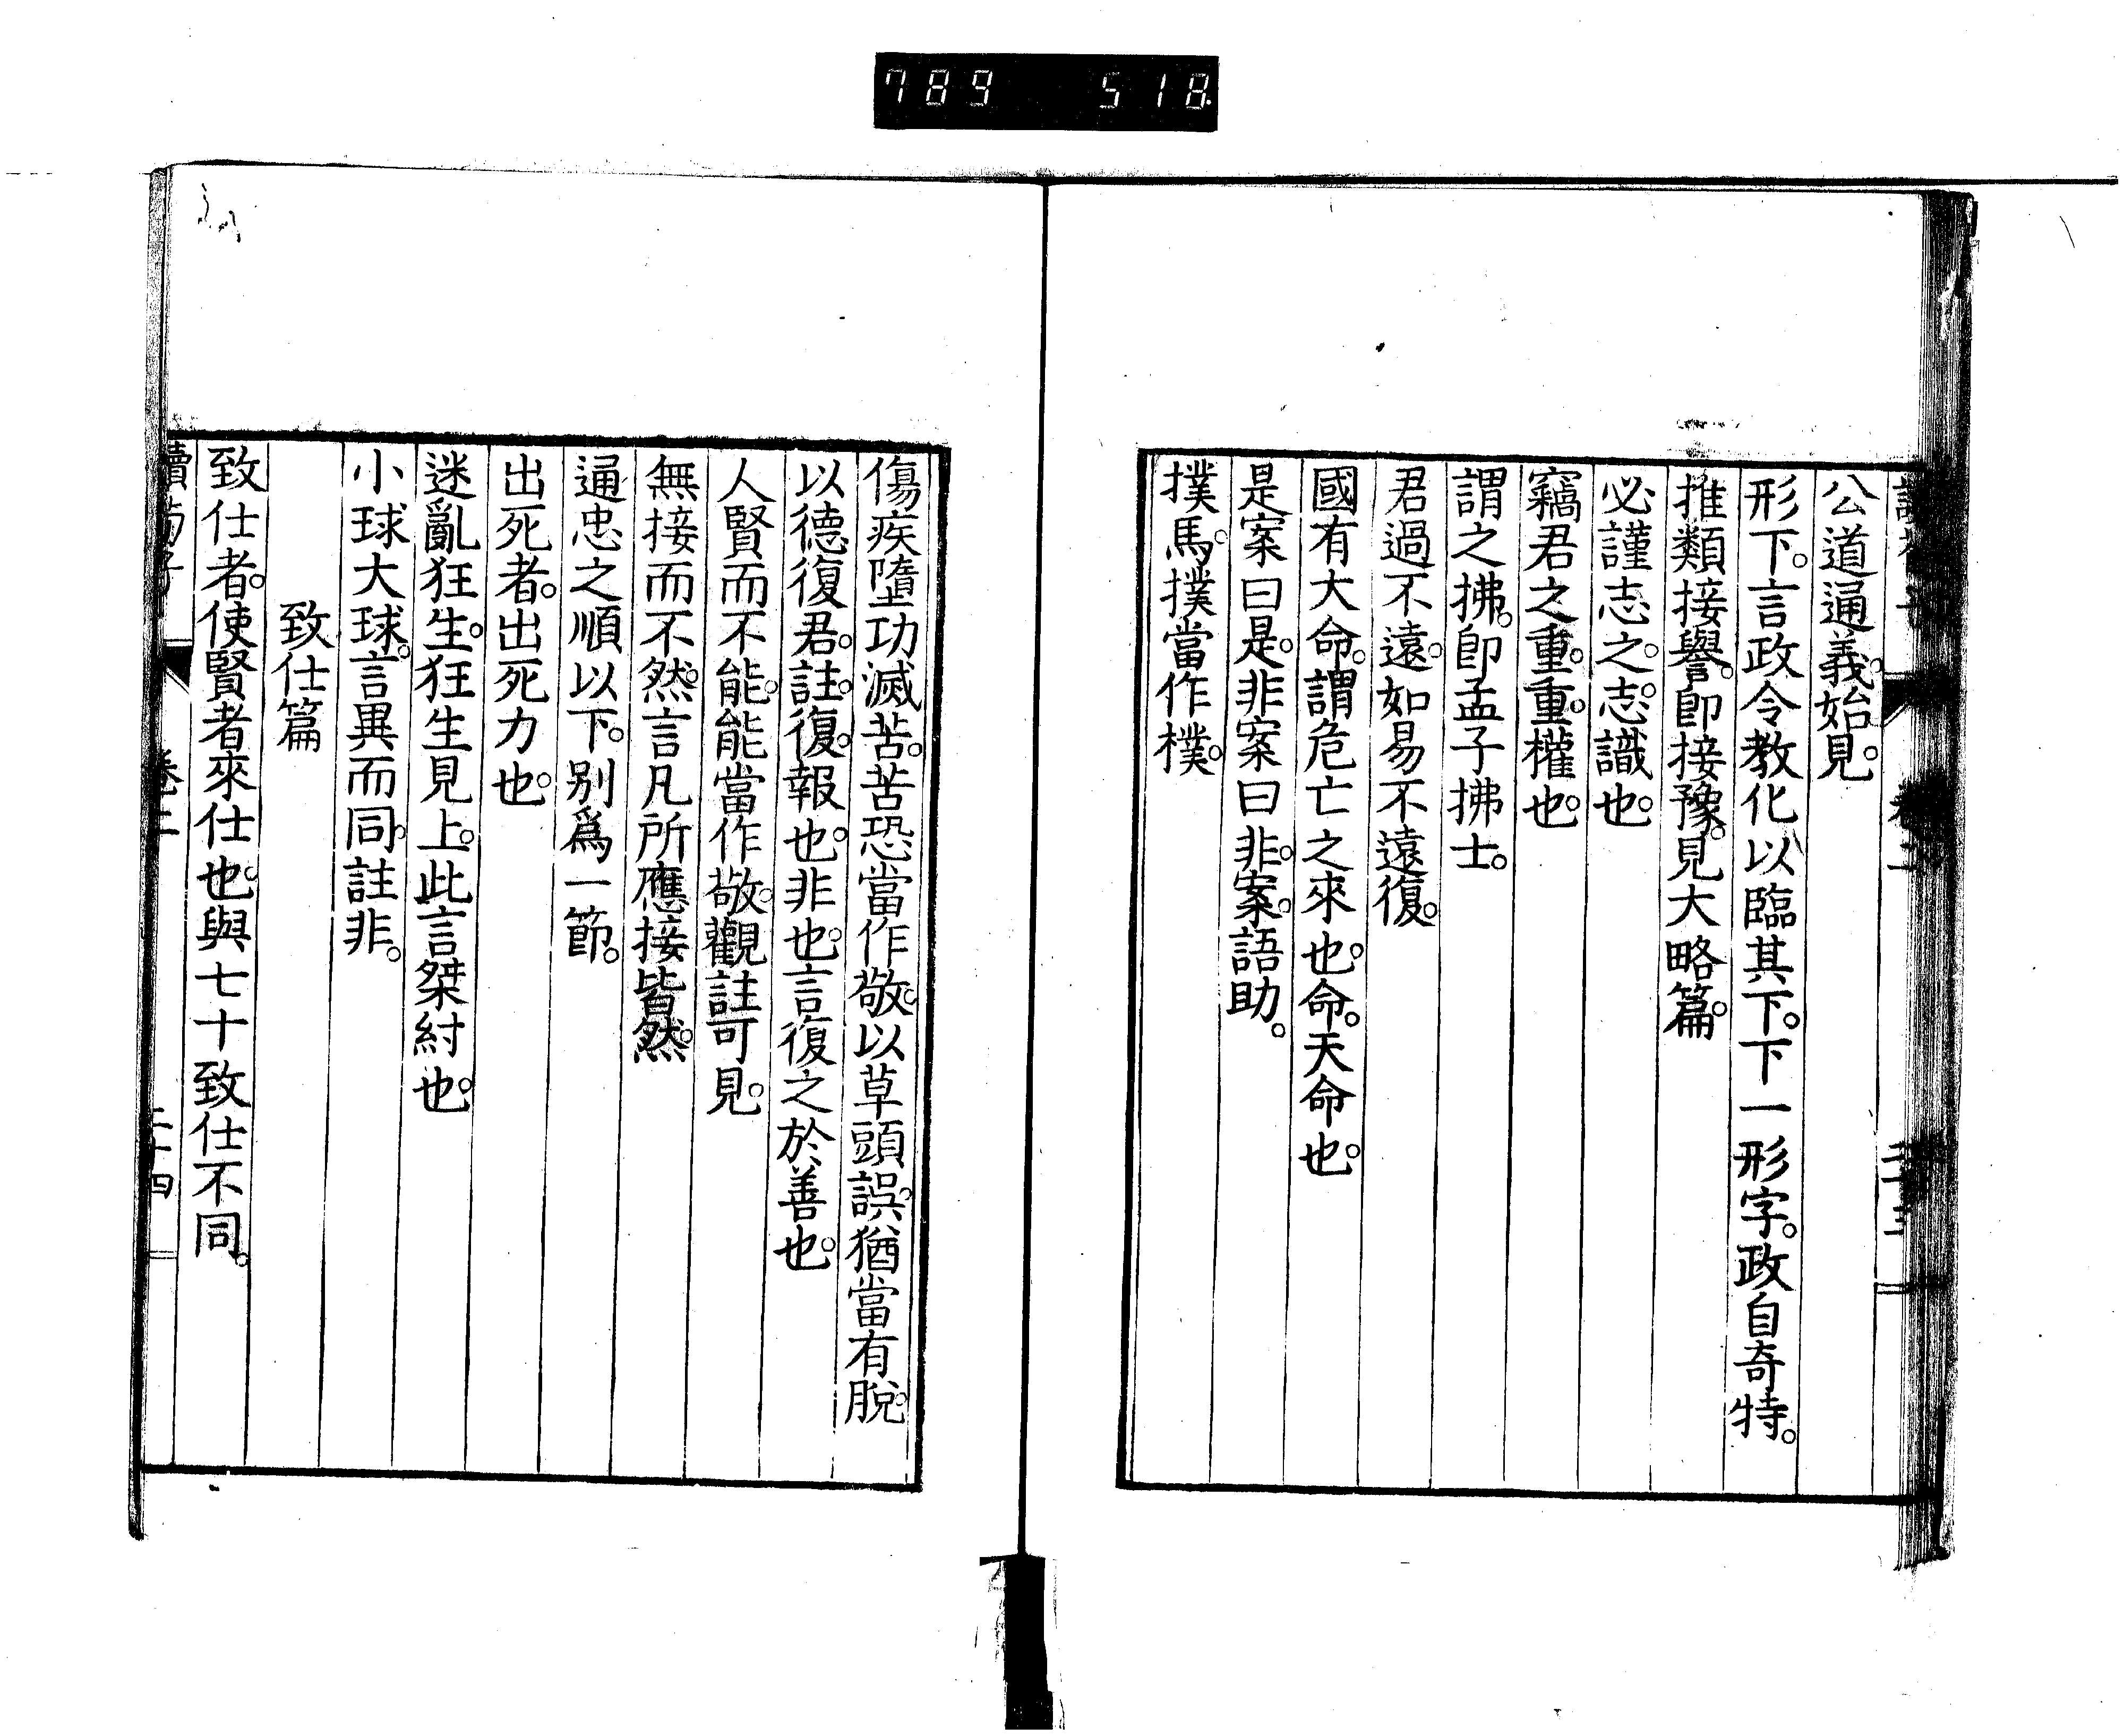 789 518.
公道通義。始見。
形下。言政令教化以臨其下。下一形字。政自奇特。
推類接譽。卽接豫。見大略篇。
必謹志之。志。識也。
竊君之重。重。權也。
謂之拂。卽孟子拂士。
君過不遠。如易不遠復。
國有大命。謂危亡之來也。命。天命也。
是案曰是。非案曰非。案。語助。
撲馬。撲當作樸。
傷疾墮功滅苦。苦恐當作敬。以草頭誤。猶當有脫。
以德復君。註。復。報也。非也。言復之於善也。
人賢而不能。能當作敬。觀註可見。
無接而不然。言凡所應接皆然。
通忠之順以下。別爲一節。
出死者。出死力也。
迷亂狂生。狂生見上。此言桀紂也。
小球大球。言異而同。註非。
致仕篇
致仕者。使賢者來仕也。與七十致仕不同。
讀荀子 卷二 二十四